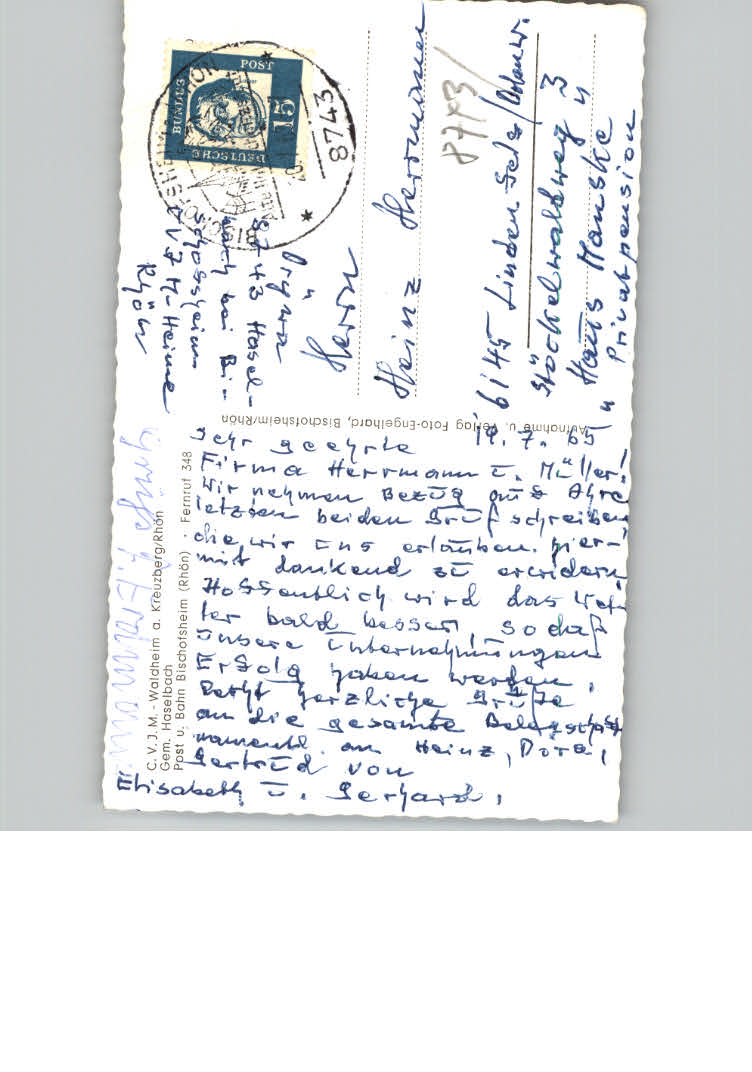 19. 7. 65
Sehr geehrte
Firma Herrmann u. Müller!
Wir nehmen Bezug auf Ihre
letzten beiden Grußschreiben,
die wir uns erlauben hier-
mit dankend zu erwidern.
Hoffentlich wird das Wet-
ter bald besser, so daß
unsere Unternehmungen
Erfolg haben werden.
Recht herzliche Grüße
an die gesamte Belegschaft
namentl. an Heinz, Dora,
Gertrud von
Elisabeth u. Gerhard.
C.V.J.M.-Waldheim a. Kreuzberg/Rhön
Gem. Haselbach
Post u. Bahn Bischofsheim (Rhön) · Fernruf 348
Aufnahme u. Verlag Foto-Engelhard, Bischofsheim/Rhön
8743 Hasel-
bach bei Bi-
schofsheim
CVJM-Heime
Rhön
DEUTSCHE
BUNDESPOST
15
8743
BISCHOFSHEIM
RHÖN
Herrn
Heinz Herrmann
8743/
6145 Lindenfels/Odenw.
Stöckelwaldweg 3
Haus Hanske
Privatpension